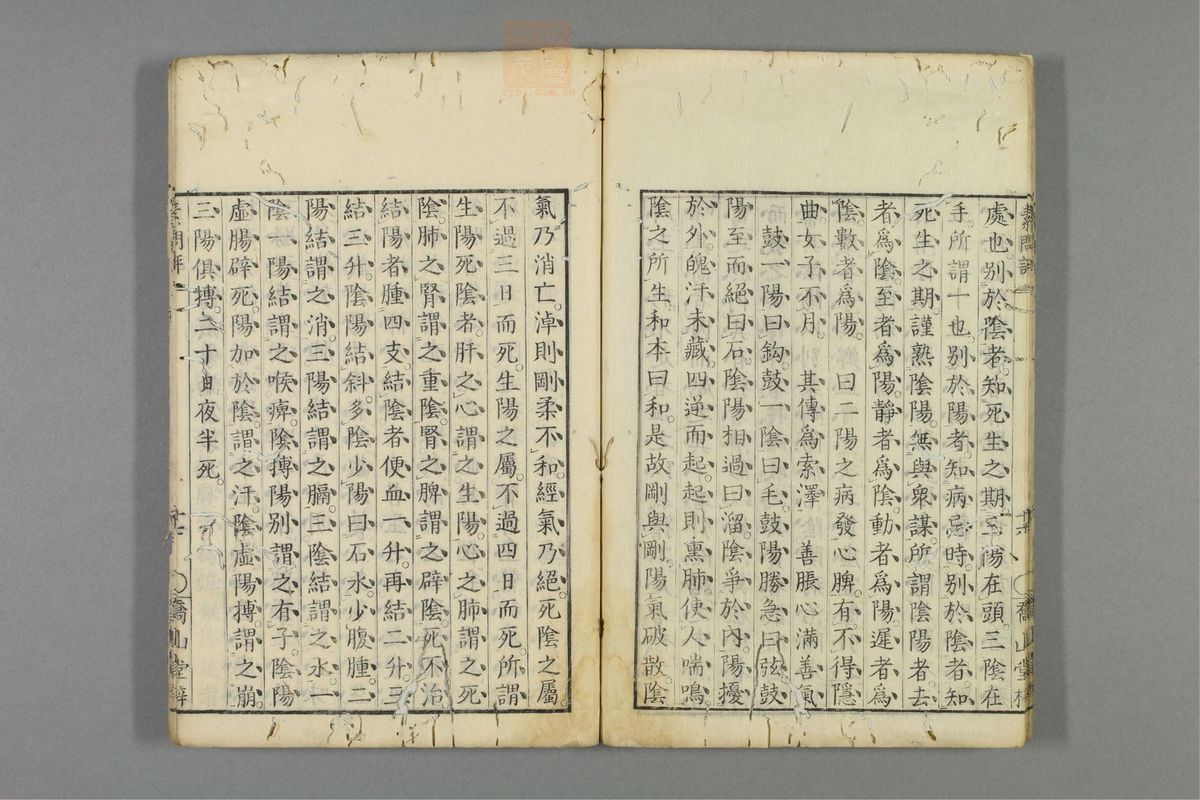 處也。别於陰者。知死生之期。三陽在頭三陰在
手。所謂一也。别於陽者。知病忌時。别於陰者。知
死生之期。謹熟陰陽。無與衆謀。所謂陰陽者。去
者爲陰。至者爲陽。靜者爲陰。動者爲陽。遲者爲
陰。數者爲陽。曰二陽之病發心脾。有不得隱
曲。女子不月。其傳爲索澤 善脹心滿善氣
鼓一陽曰鈎。鼓一陰曰毛。鼓陽勝急曰弦。鼓
陽至而絕曰石。陰陽相過曰溜。陰爭於內。陽擾
於外。魄汗未藏。四逆而起。起則熏肺。使人喘鳴。
陰之所生。和本曰和。是故剛與剛。陽氣破散。陰
氣乃消亡。淖則剛柔不和。經氣乃絕。死陰之屬。
不過三日而死。生陽之屬。不過四日而死。所謂
生陽死陰者。肝之心謂之生陽。心之肺謂之死
陰。肺之腎謂之重陰。腎之脾謂之辟陰。死不治
結陽者。腫四支。結陰者。便血一升。再結二升。三
結三升。陰陽結斜。多陰少陽曰石水。少腹腫。二
陽結謂之消。三陽結謂之膈。三陰結謂之水。一
陰一陽結。謂之喉痺。陰搏陽别。謂之有子。陰陽
虛腸辟死。陽加於陰。謂之汗。陰虛陽搏。謂之崩。
三陽俱搏。二十日夜半死。
喬山堂